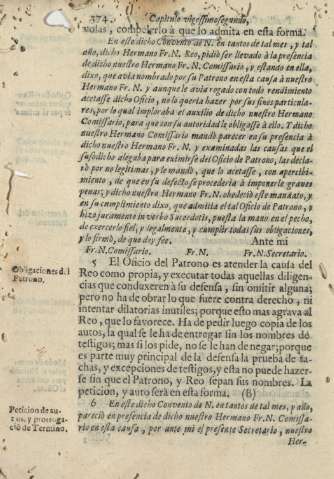 374 Capitulo vigessimosegundo,
volas, compelerlo à que lo admita en esta forma.
En este dicho Convento de N. en tantos de tal mes, y tal
año, dicho Hermano Fr. N. Reo, pidiò ser llevado à la presencia
de dicho nuestro Hermano Fr. N. Comissario, y estando en ella,
dixo, que avia nombrado por su Patrono en esta causa à nuestro
Hermano Fr. N. y aunque le avia rogado con todo rendimiento
acetasse dicho Oficio, no lo queria hazer por sus fines particula-
res, por lo qual imploraba el auxilio de dicho nuestro Hermano
Comissario, para que con su autoridad le obligasse à ello. Y dicho
nuestro Hermano Comissario mandò parecer en su presencia à
dicho nuestro Hermano Fr. N. y examinadas las causas que el
susodicho alegaba para eximirse del Oficio de Patrono, las decla-
rò por no legitimas, y le mandò, que lo acetasse, con apercibi-
miento, de que en su defecto se procederia à imponerle graves
penas; y dicho nuestro Hermano Fr. N. obedeciò este mandato, y
en su cumplimiento dixo, que admitia el tal Oficio de Patrono, y
hizo juramento in verbo Sacerdotis, puesta la mano en el pecho,
de exercerlo fiel, y legalmente, y cumplir todas sus obligaciones,
y lo firmò, de que doy fee. Ante mi
Fr. N. Comissario. Fr. N. Fr. N. Secretario.
Obligaciones del
Patrono.
5 El Oficio del Patrono es atender la causa del
Reo como propia, y executar todas aquellas diligen-
cias que conduxeren à su defensa, sin omitir alguna;
pero no ha de obrar lo que fuere contra derecho, ni
intentar dilatorias inutiles; porque esto mas agrava al
Reo, que lo favorece. Ha de pedir luego copia de los
autos, la qual se le ha de entregar sin los nombres de
testigos; mas si los pide, no se le han de negar; porque
es parte muy principal de la defensa la prueba de ta-
chas, y excepciones de testigos, y esta no puede hazer-
se sin que el Patrono, y Reo sepan sus nombres. La
peticion, y auto serà en esta forma. (B)
Peticion de au-
tos, y prorroga-
ciò de Termino.
6 En este dicho Convento de N. en tantos de tal mes, y año,
pareciò en presencia de dicho nuestro Hermano Fr. N. Comissa-
rio en esta causa, por ante mi el presente Secretario, nuestro
Her-